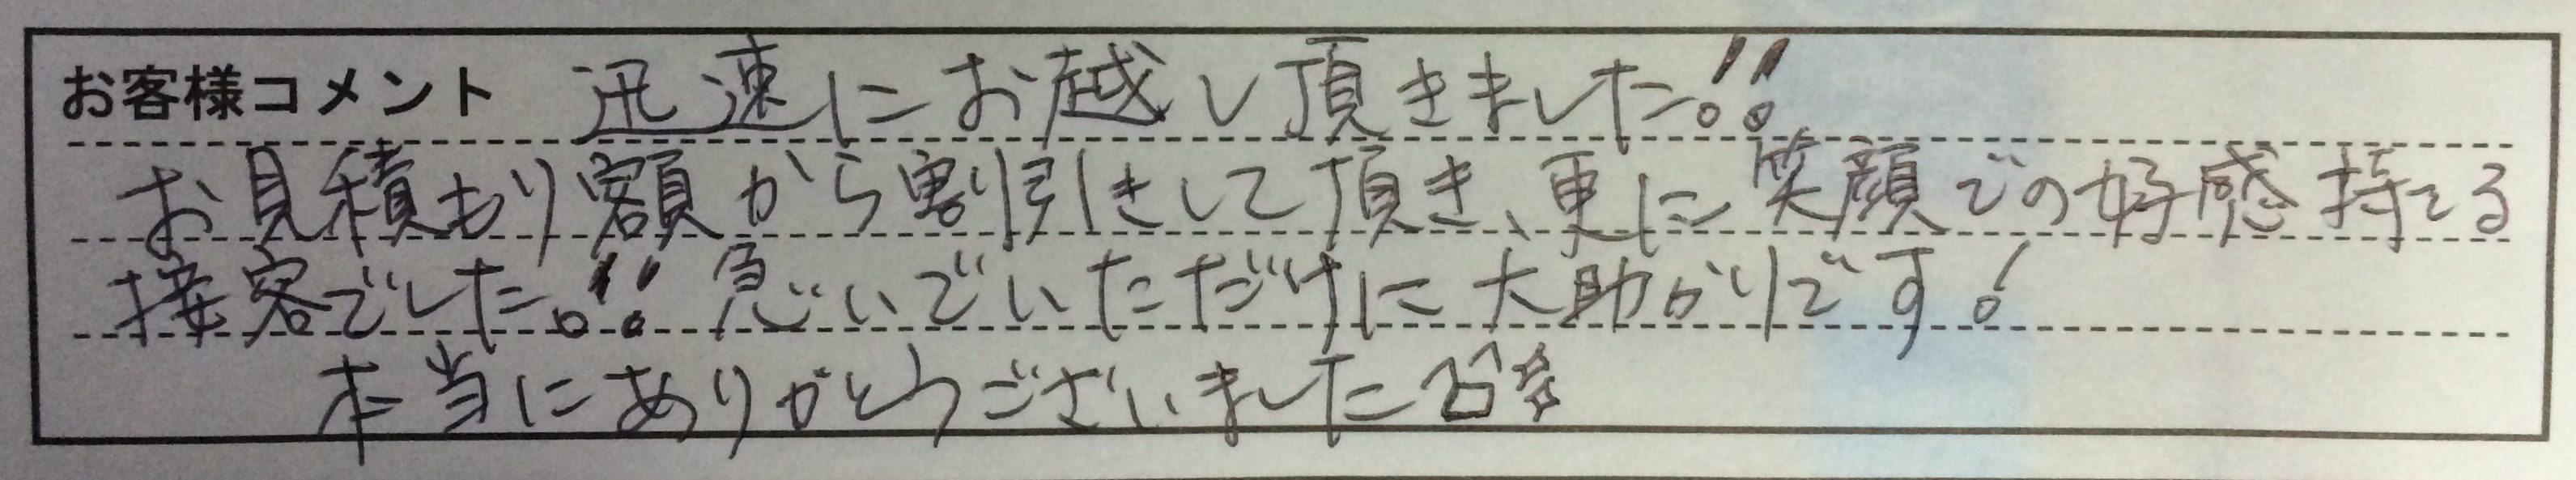 お客様コメント 迅速にお越し頂きました!!
お見積もり額から割引きして頂き、更に笑顔での好感持てる
接客でした!! 急いでいただけに大助かりです!
本当にありがとうございました